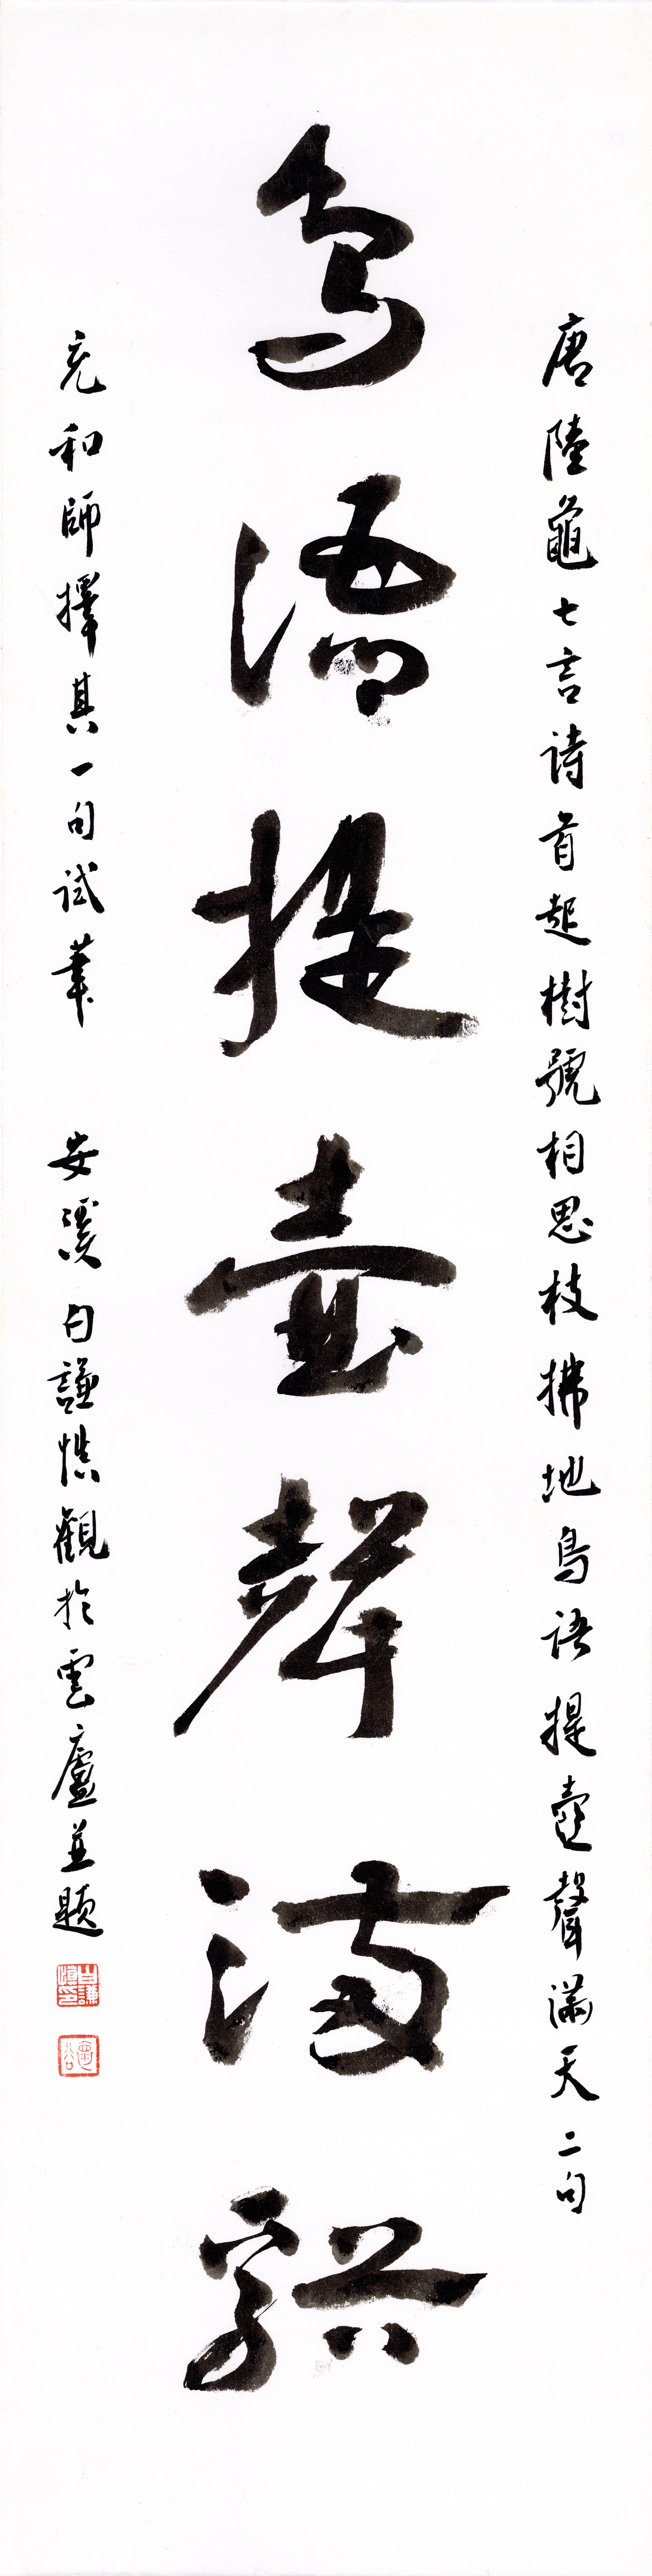 唐陸龜七言詩首起樹號相思枝拂地鳥語提壺聲滿天二句
鳥語提壺聲滿谿
充和師擇其一句試筆 安溪白謙慎觀於雲廬並題
白謙慎印